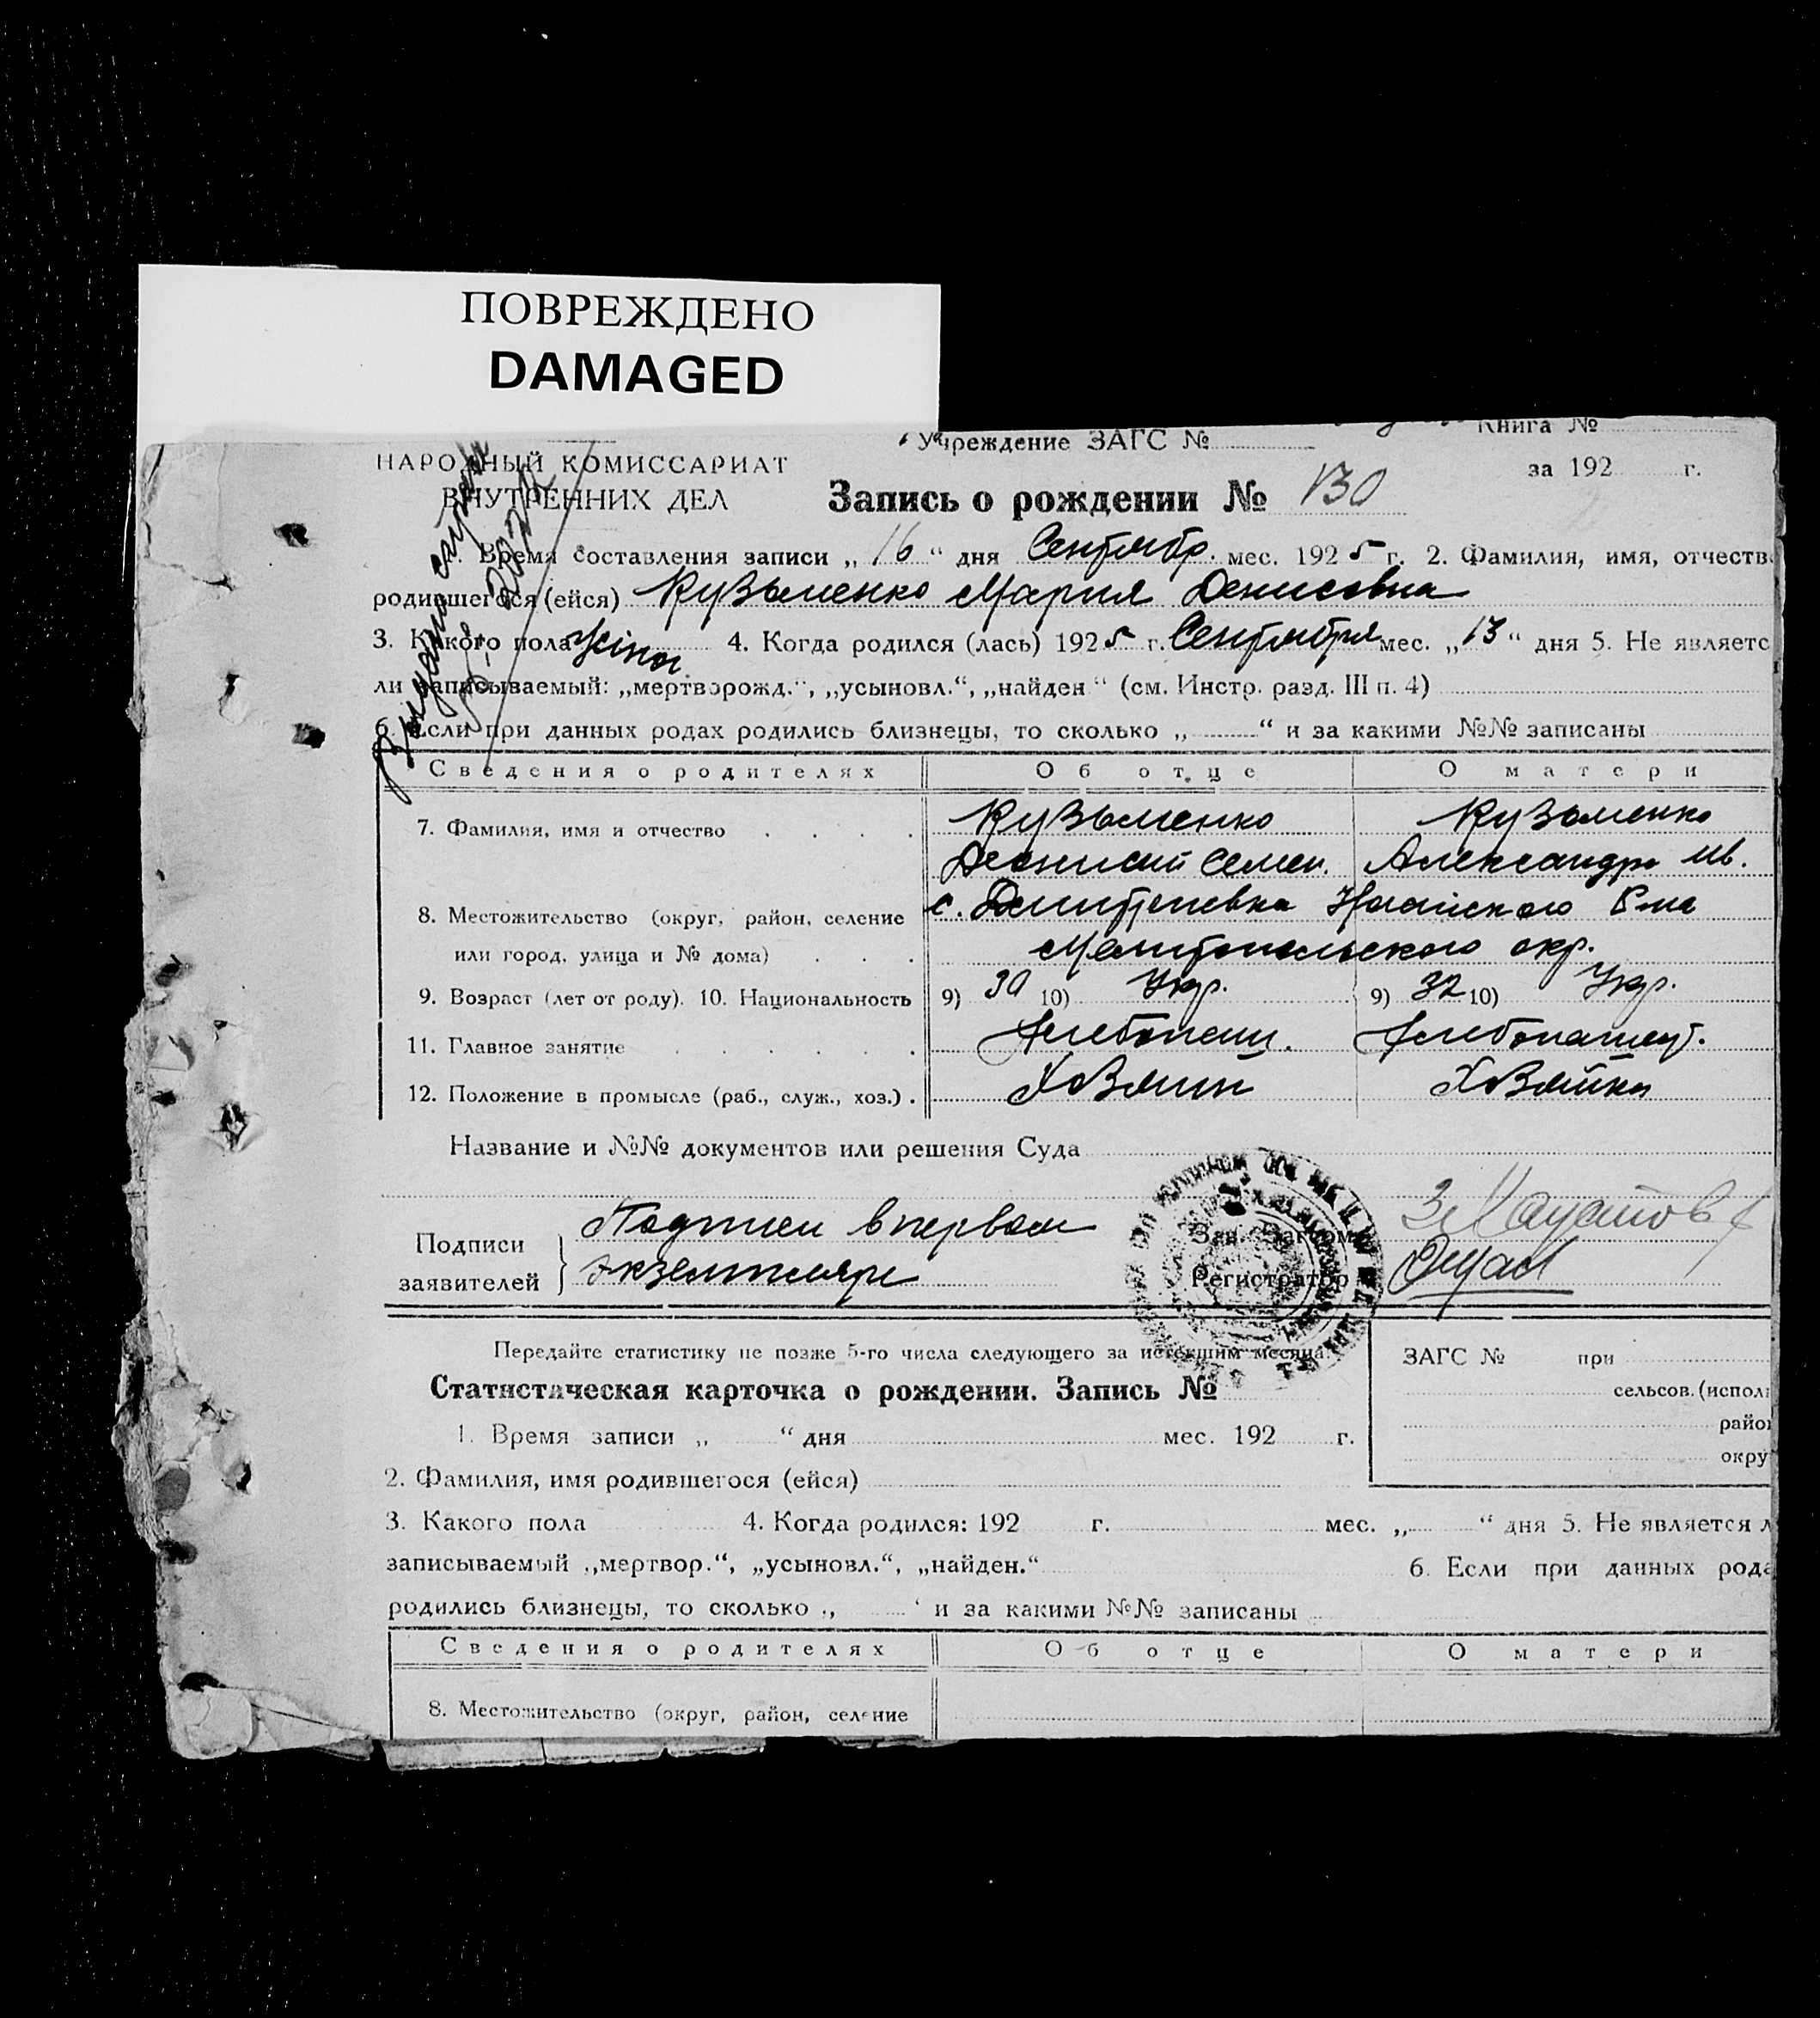 ПОВРЕЖДЕНО
DAMAGED
Учреждение ЗАГС №
Книга №
НАРОДНЫЙ КОМИССАРИАТ
за 192 г.
ВНУТРЕННИХ ДЕЛ
Запись о рождении № 130
1. Время составления записи „16“ дня Сентябр. мес. 1925 г. 2. Фамилия, имя, отчеств
родившегося (ейся) Кузьменко Мария Денисовна
3. Какого пола жінк. 4. Когда родился (лась) 1925 г. Сентября мес. „13“ дня 5. Не являетс
ли записываемый: „мертворожд.“, „усыновл.“, „найден“ (см. Инстр. разд. III п. 4)
6. Если при данных родах родились близнецы, то сколько „ “ и за какими №№ записаны
Сведения о родителях Об отце О матери
7. Фамилия, имя и отчество Кузьменко Кузьменко
Денисий Семен. Александра Ив.
8. Местожительство (округ, район, селение с. Дмитриевка
или город, улица и № дома) Мелитопольского окр.
9. Возраст (лет от роду). 10. Национальность 9) 30 10) Укр. 9) 32 10) Укр.
11. Главное занятие Хлебопаш. Хлебопашец.
12. Положение в промысле (раб., служ., хоз.) Хозяин Хозяйка
Название и №№ документов или решения Суда
Подписи заявителей } Подписи в первом
экземпляре
Зав. Загсом
Регистратор
Передайте статистику не позже 5-го числа следующего за истекшим месяца.
ЗАГС № при
сельсов. (испол
Статистическая карточка о рождении. Запись №
райо
1. Время записи „ “ дня мес. 192 г.
окру
2. Фамилия, имя родившегося (ейся)
3. Какого пола 4. Когда родился: 192 г. мес. „ “ дня 5. Не является л
записываемый „мертвор.“, „усыновл.“, „найден.“ 6. Если при данных рода
родились близнецы, то сколько „ “ и за какими №№ записаны
Сведения о родителях Об отце О матери
8. Местожительство (округ, район, селение